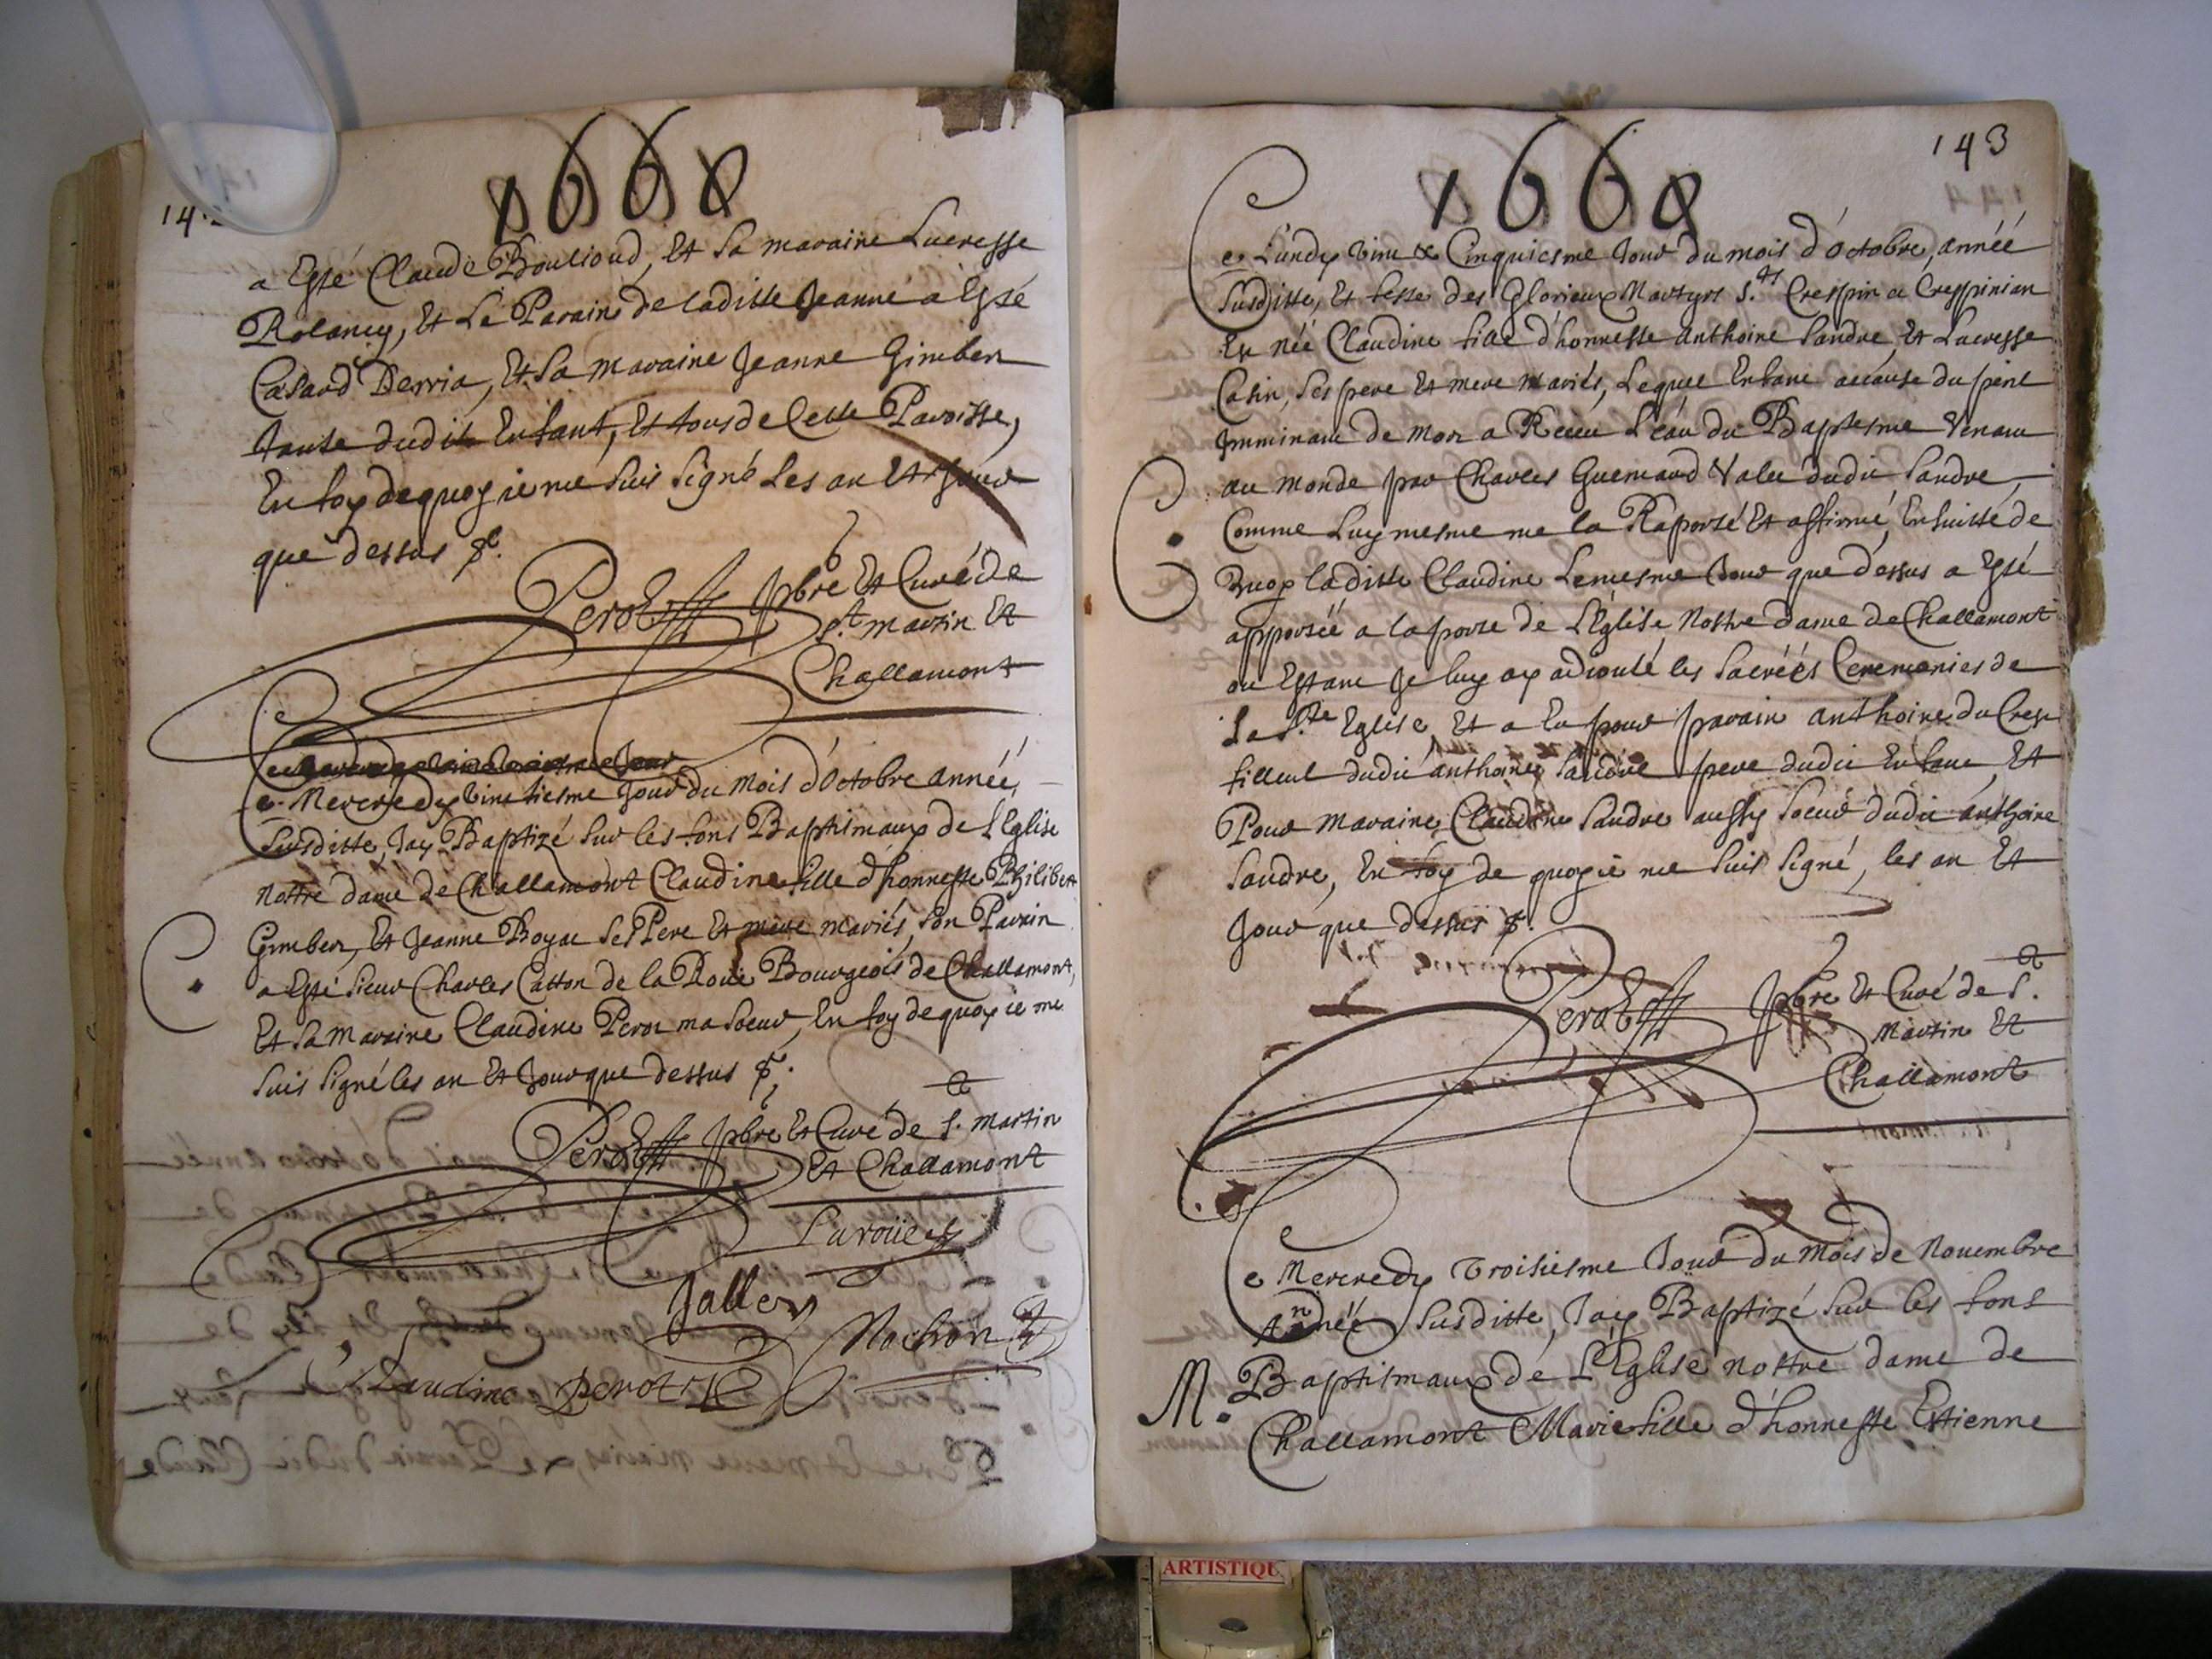 1668
a Esté Claude Boulioud, Et Sa maraine Lucresse
Rolancy, Et Le Parain de laditte Jeanne a Esté
Casard Derria, Et Sa maraine Jeanne Gimber
tante dudit Enfant, Et tous de Cette Paroisse,
En foy dequoy ie me suis Signé Les an Et Jour
que dessus
Perot pbre Et Curé de
St. martin Et
Challamont
e Mercredy Vintiesme Jour du Mois d'Octobre année
Susditte, Jay Baptizé Sur les fons Baptismaux de l'Eglise
nostre dame de Challamont Claudine fille d'honneste Philibert
Gimber, Et Jeanne Boyat Ses Pere Et mere mariés, Son Parin
a Esté Sieur Charles Catton de la Roüe Bourgeois de Challamont,
Et Sa maraine Claudine Perot ma Soeur, En foy dequoy ie me
Suis Signé les an Et Jour que dessus
Perot pbre Et Curé de St. Martin
Et Challamont
Laroüe
Jallet
Nochon
Claudine perot
1668
143
e Lundy Vint & Cinquiesme Jour du mois d'Octobre, année
Susditte, Et feste des Glorieux Martyrs Sts. Crespin et Crespinian
Est née Claudine fille d'honneste Anthoine Sandre, Et Lucresse
Casin, Ses pere Et mere mariés, Lequel Enfant acause du peril
Imminant de mort a Receu L'eau du Baptesme Venant
au monde par Charles Guemard Valet dudit Sandre,
Comme Luy mesme me la Raporté Et affirmé, En suitte de
Quoy laditte Claudine Lemesme Jour que dessus a Esté
apportée a la porte de L'Eglise Nostre dame de Challamont
ou Estant Je luy ay adiouté les Sacréés Ceremonies de
La Ste Eglise, Et a Eu pour parain anthoine du Crest
filleul dudit anthoine Sandre pere dudit Enfant, Et
Pour Maraine Claudine Sandre aussy Soeur dudit anthoine
Sandre, En foy de quoy ie me Suis Signé, les an Et
Jour que dessus
Perot pbre Et Curé de St.
Martin Et
Challamont
e Mercredy Troisiesme Jour du Mois de Nouembre
Année Susditte, Jay Baptizé Sur les fons
M. Baptismaux de L'Eglise nostre dame de
Challamont Marie fille d'honneste Estienne
ARTISTIQU